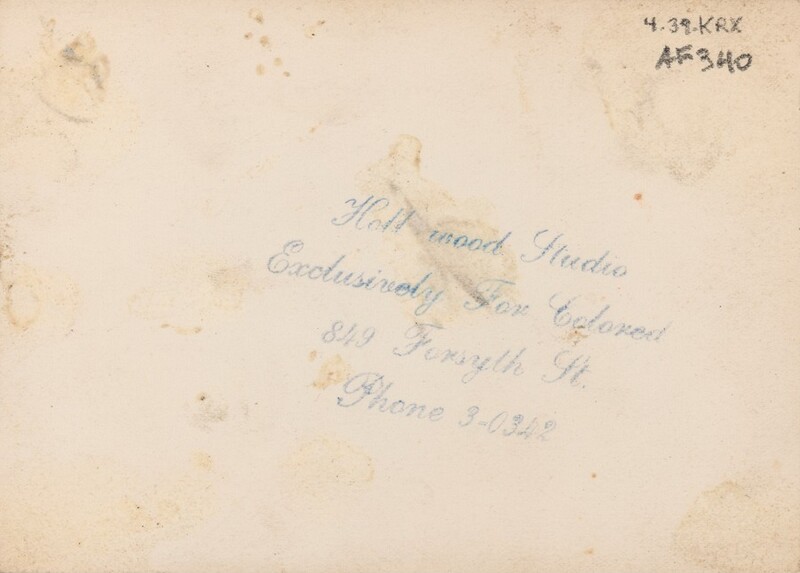 4.39.KRX
AF340
Holl wood Studio
Exclusively For Colored
849 Forsyth St.
Phone 3-0342